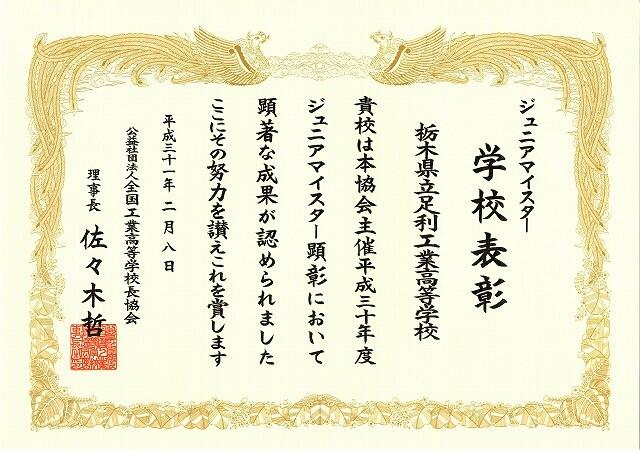 ジュニアマイスター
学校表彰
栃木県立足利工業高等学校
貴校は本協会主催平成三十年度
ジュニアマイスター顕彰において
顕著な成果が認められました
ここにその努力を讃えこれを賞します
平成三十一年 二月 八日
公益社団法人全国工業高等学校長協会
理事長 佐々木哲